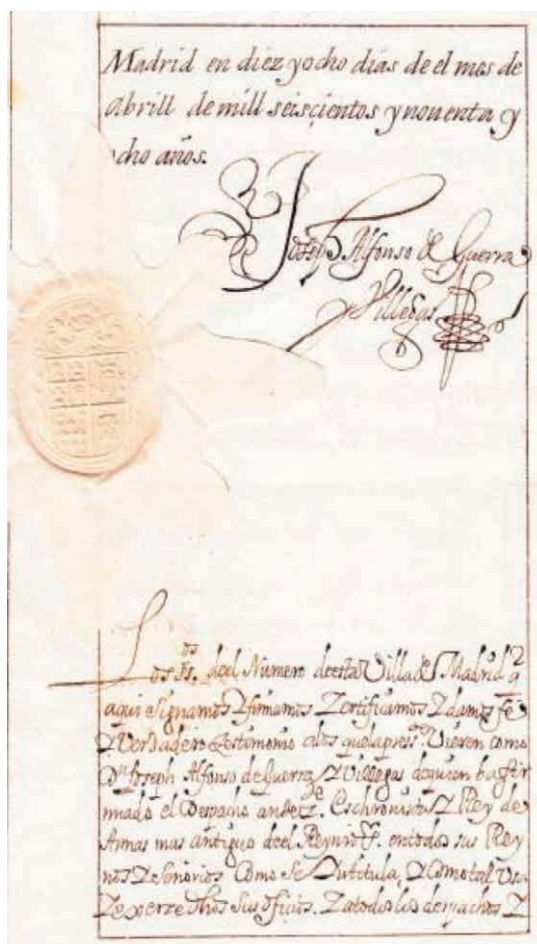 Madrid en diez y ocho dias de el mes de
Abrill de mill seisçientos y nouenta y
ocho años.
Joseph Alfonso de Guerra
y Villegas
Los ss.nos del Numero desta Villa de Madrid q
aqui signamos y firmamos Zertificamos y damos fe
y Verdadero testimonio alos que la press.te Vieren como
Dn Joseph Alfonso de Guerra y Villegas de quien ba fir
mado el Despacho antez.te es chronista y Rey de
Armas mas antiguo del Rey nro s.r en todos sus Rey
nos y Señorios Como se Yntitula, y Como tal Vsa
y exerze dhos sus ofiçios. Y atodos los despachos y